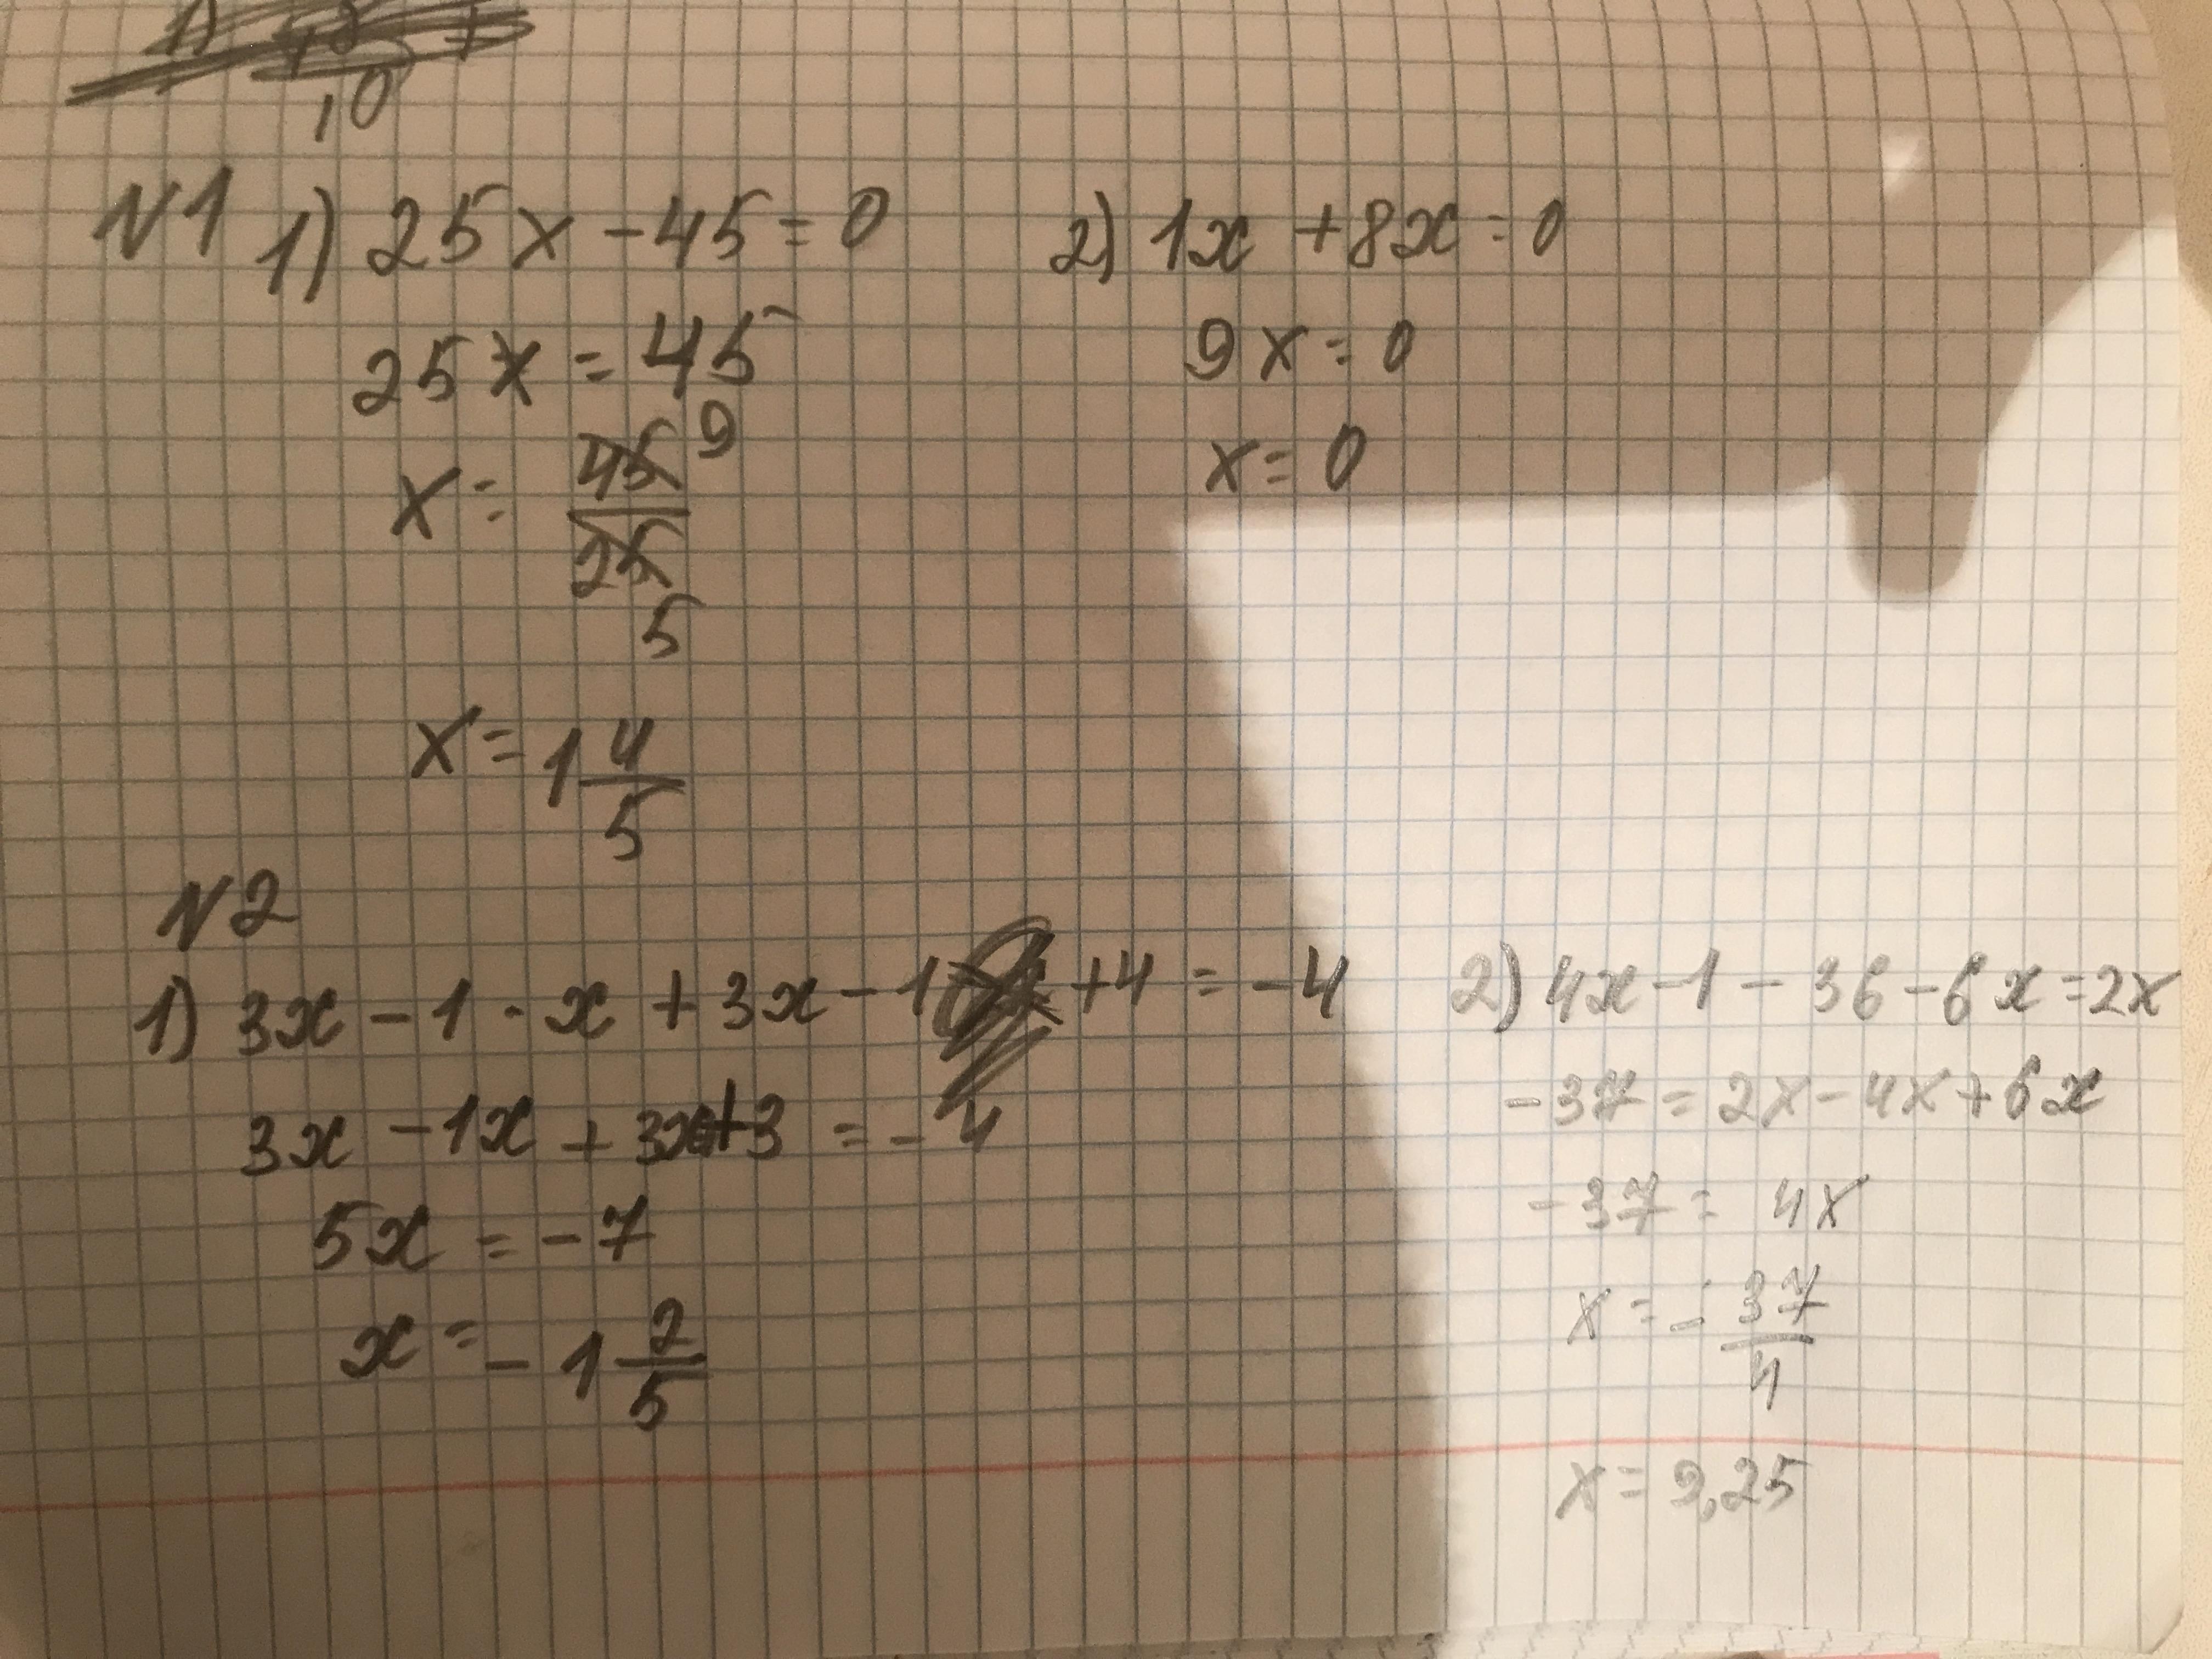 10
N1 1) 25x - 45 = 0
25x = 45
x = 45/25 9 5
x = 1 4/5
2) 1x + 8x = 0
9x = 0
x = 0
N2
1) 3x - 1 · x + 3x - 1 + 4 = -4
3x - 1x + 3x + 3 = -4
5x = -7
x = -1 2/5
2) 4x - 1 - 36 - 6x = 2x
-37 = 2x - 4x + 6x
-37 = 4x
x = - 37/4
x = 9,25